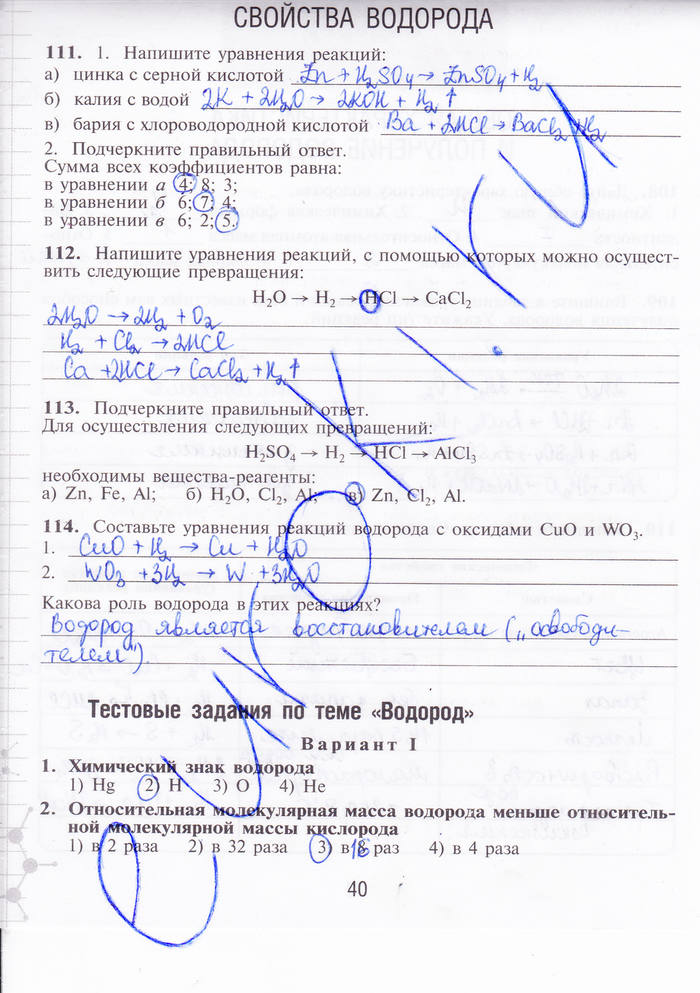 СВОЙСТВА ВОДОРОДА
111. 1. Напишите уравнения реакций:
а) цинка с серной кислотой Zn + H₂SO₄ → ZnSO₄ + H₂
б) калия с водой 2K + 2H₂O → 2KOH + H₂ ↑
в) бария с хлороводородной кислотой Ba + 2HCl → BaCl₂ + H₂
2. Подчеркните правильный ответ.
Сумма всех коэффициентов равна:
в уравнении а 4; 8; 3;
в уравнении б 6; 7; 4;
в уравнении в 6; 2; 5.
112. Напишите уравнения реакций, с помощью которых можно осущест-
вить следующие превращения:
H₂O → H₂ → HCl → CaCl₂
2H₂O → 2H₂ + O₂
H₂ + Cl₂ → 2HCl
Ca + 2HCl → CaCl₂ + H₂ ↑
113. Подчеркните правильный ответ.
Для осуществления следующих превращений:
H₂SO₄ → H₂ → HCl → AlCl₃
необходимы вещества-реагенты:
а) Zn, Fe, Al; б) H₂O, Cl₂, Al; в) Zn, Cl₂, Al.
114. Составьте уравнения реакций водорода с оксидами CuO и WO₃.
1. CuO + H₂ → Cu + H₂O
2. WO₃ + 3H₂ → W + 3H₂O
Какова роль водорода в этих реакциях?
Водород является восстановителем („освободи-
телем")
Тестовые задания по теме «Водород»
Вариант I
1. Химический знак водорода
1) Hg 2) H 3) O 4) He
2. Относительная молекулярная масса водорода меньше относитель-
ной молекулярной массы кислорода
1) в 2 раза 2) в 32 раза 3) в 16 раз 4) в 4 раза
40